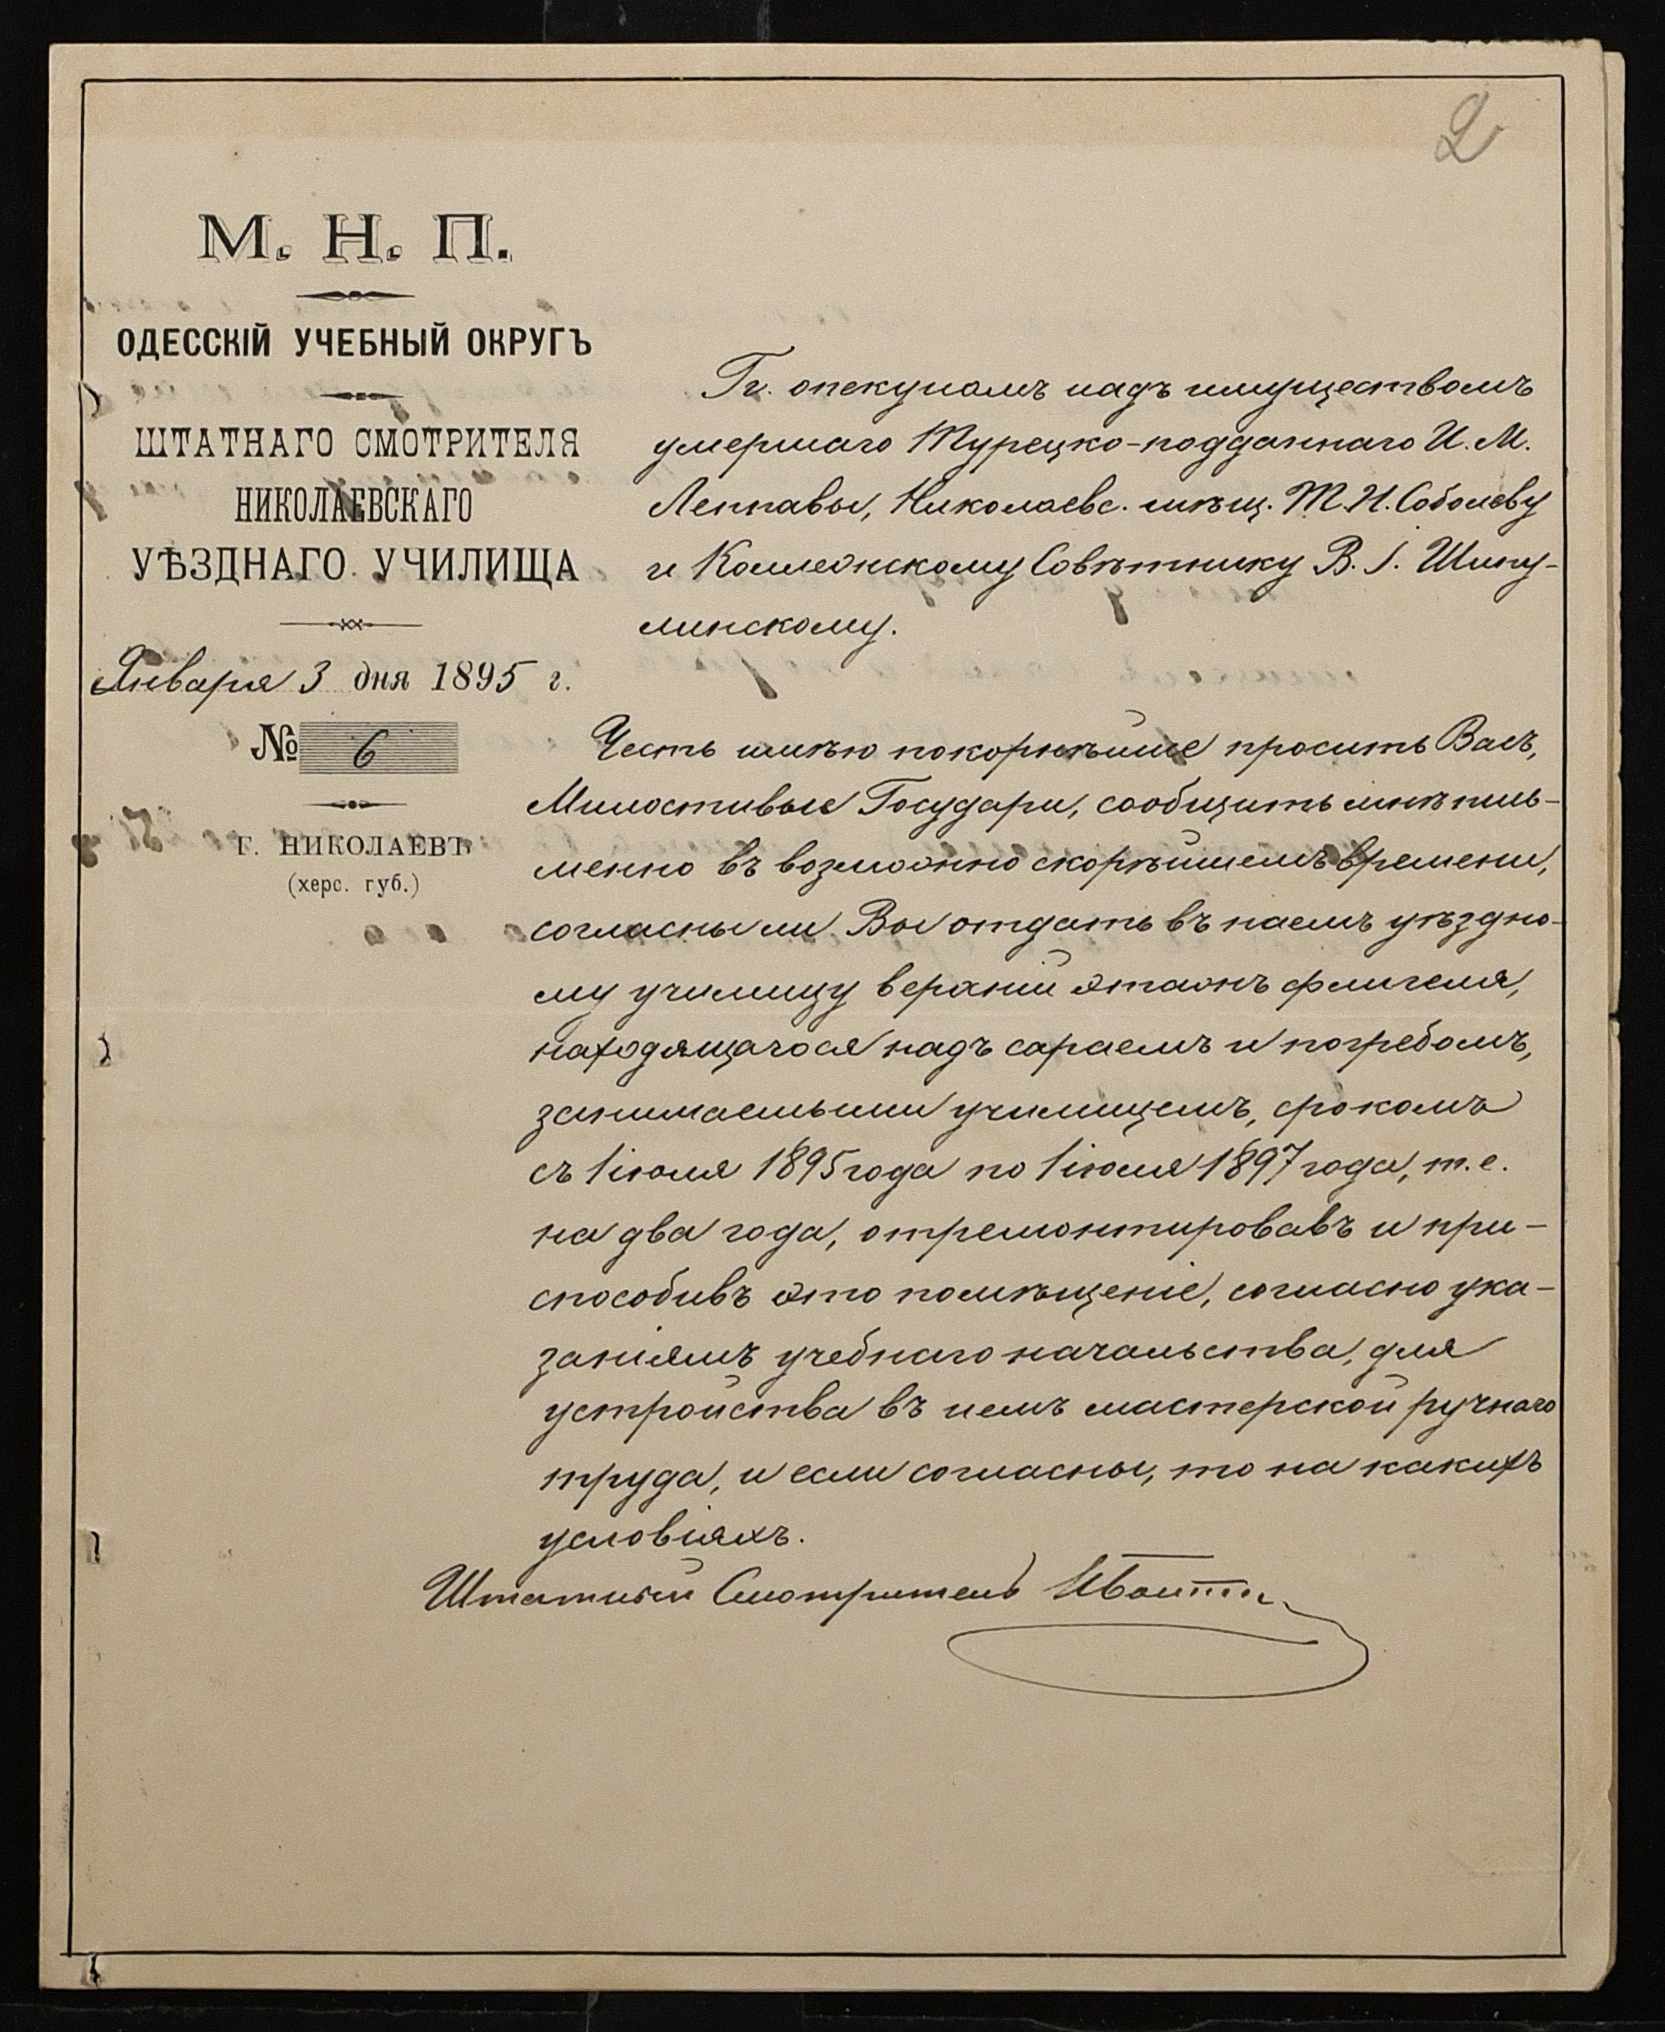 2
М. Н. П.
ОДЕССКІЙ УЧЕБНЫЙ ОКРУГЪ
ШТАТНАГО СМОТРИТЕЛЯ
НИКОЛАЕВСКАГО
УѢЗДНАГО УЧИЛИЩА
Января 3 дня 1895 г.
№ 6
Г. НИКОЛАЕВЪ
(херс. губ.)
Гг. опекунамъ надъ имуществомъ
умершаго Турецко-подданнаго И. М.
Леппавы, Николаевс. мѣщ. Т. И. Соболеву
и Коллежскому Совѣтнику В. І. Шипу-
линскому.
Честь имѣю покорнѣйше просить Васъ,
Милостивые Государи, сообщить мнѣ пись-
менно въ возможно скорѣйшемъ времени,
согласны ли Вы отдать въ наемъ уѣздно-
му училищу верхній этажъ флигеля,
находящагося надъ сараемъ и погребомъ,
занимаемыми училищемъ, срокомъ
съ 1 іюля 1895 года по 1 іюля 1897 года, т. е.
на два года, отремонтировавъ и при-
способивъ это помѣщеніе, согласно ука-
заніямъ учебнаго начальства, для
устройства въ немъ мастерской ручнаго
труда, и если согласны, то на какихъ
условіяхъ.
Штатный Смотритель